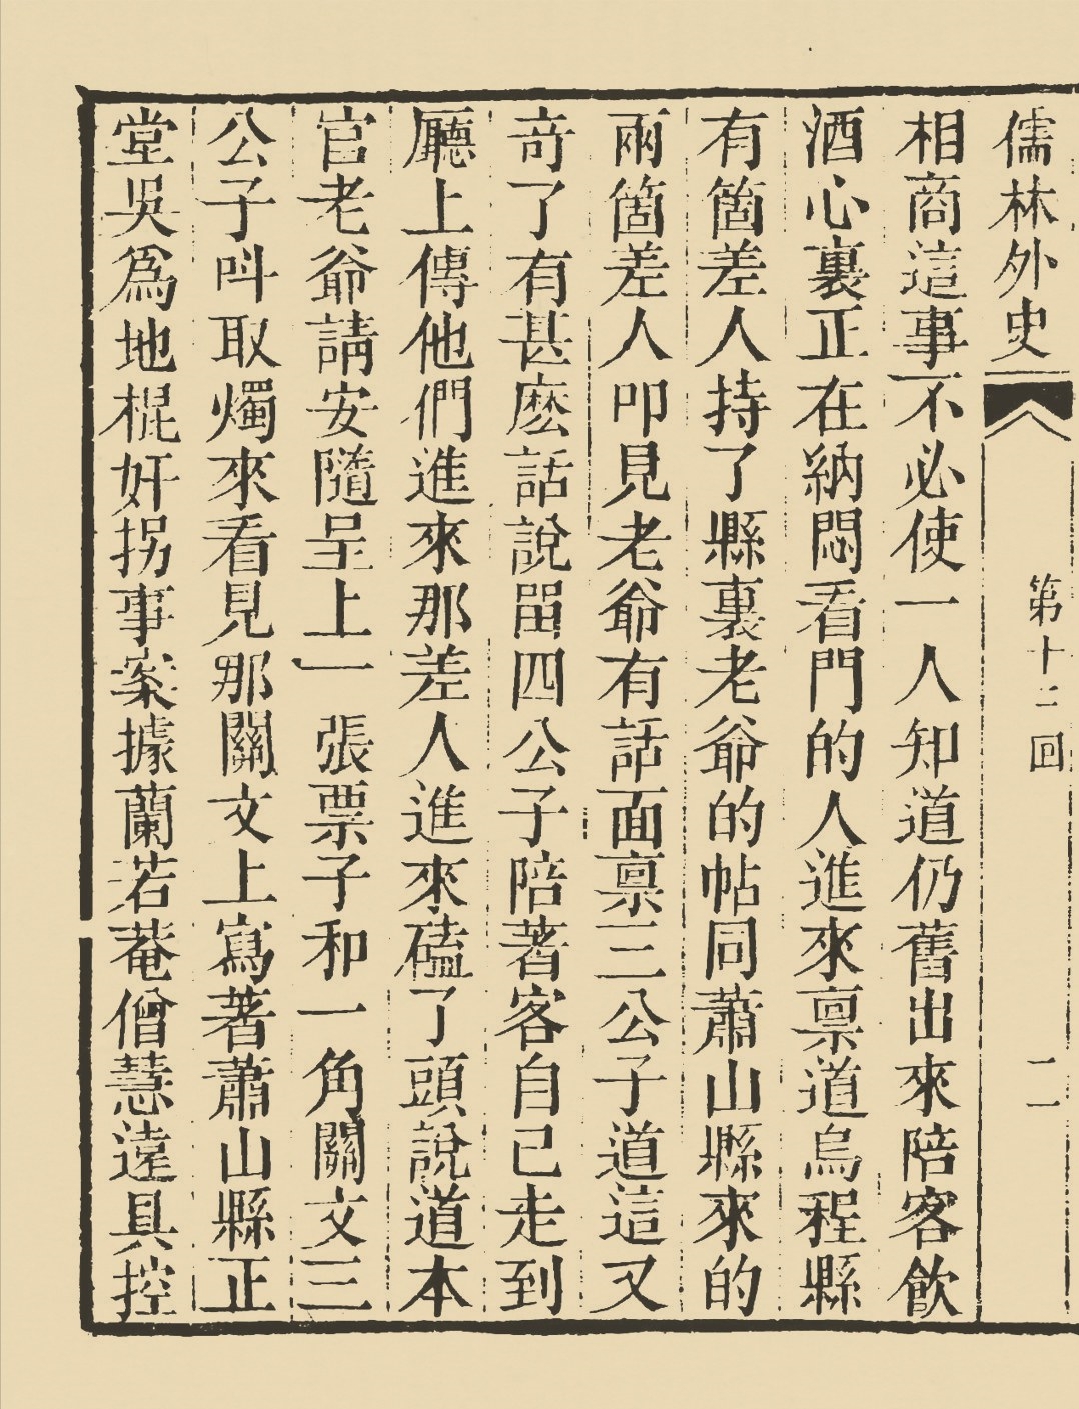 儒林外史 第十三回 二
相商這事不必使一人知道仍舊出來陪客飲
酒心裏正在納悶看門的人進來稟道烏程縣
有箇差人持了縣裏老爺的帖同蕭山縣來的
兩箇差人叩見老爺有話面稟三公子道這又
奇了有甚麽話說畱四公子陪著客自己走到
廳上傳他們進來那差人進來磕了頭說道本
官老爺請安隨呈上一張票子和一角關文三
公子呌取燭來看見那關文上寫著蕭山縣正
堂吳爲地棍奸拐事案據蘭若菴僧慧遠具控